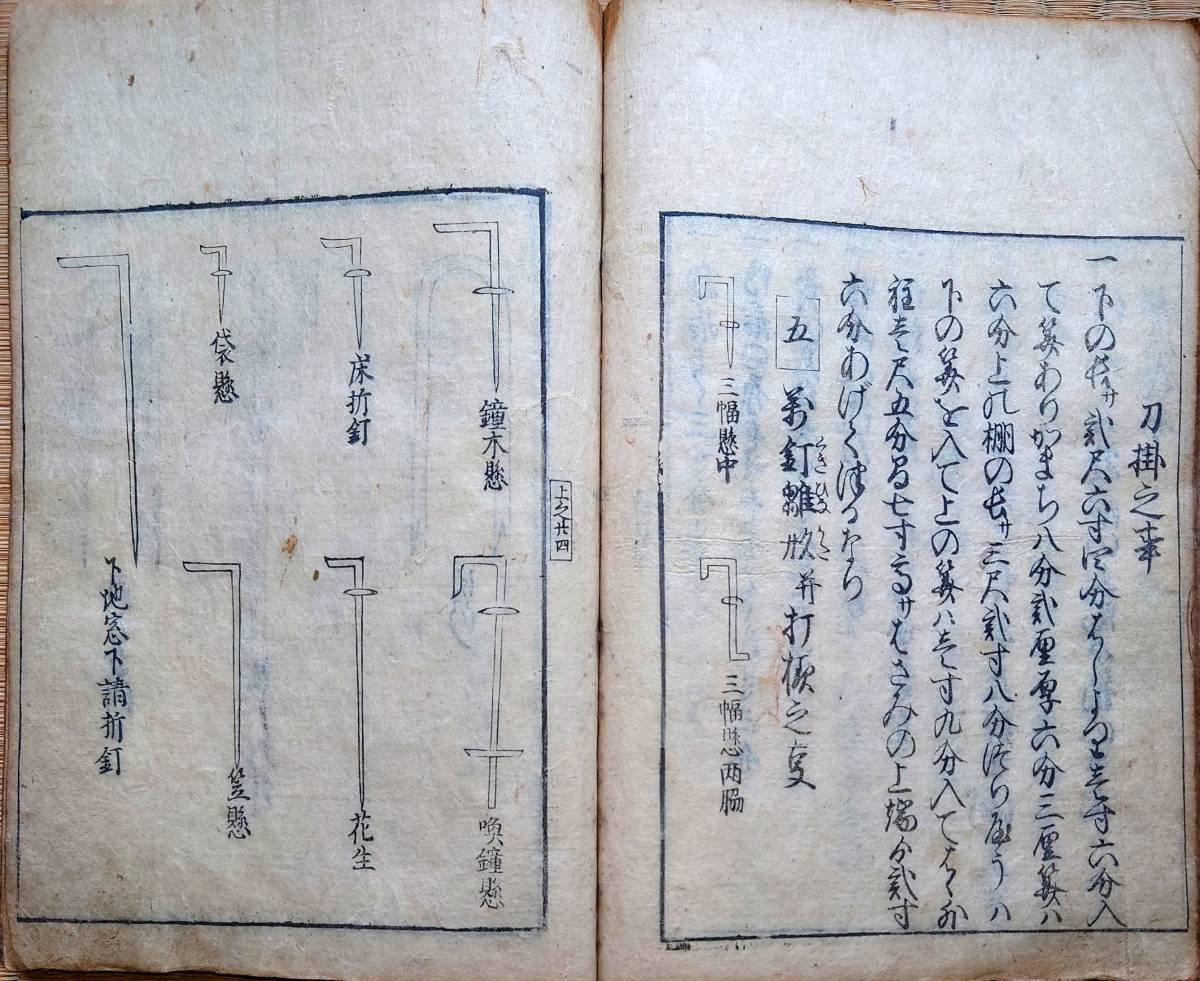 刀掛之事
一下の長サ弐尺六寸四分はしより壱寸六分入
て簨ありかまち八分弐厘厚六分三厘簨ハ
六分上の棚の長サ三尺弐寸八分
下の簨を入て上の簨ハ壱寸九分入て
柱壱尺五分 七寸 はさみの上端 弐寸
六分あげてほるなり
五 萬釘雛形并打様之事
くぎひながた
三幅懸中
三幅懸両脇
上之廿四
鐘木懸
喚鐘懸
床折釘
花生
袋懸
笠懸
下地窓下請折釘